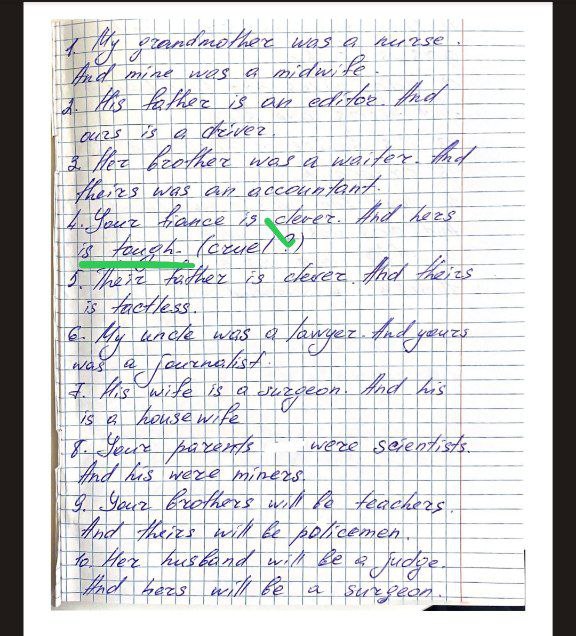 1. My grandmother was a nurse.
And mine was a midwife.
2. His father is an editor. And
ours is a driver.
3. Her brother was a waiter. And
theirs was an accountant.
4. Your fiance is clever. And hers
is tough. (cruel?)
5. Their father is clever. And theirs
is tactless.
6. My uncle was a lawyer. And yours
was a journalist.
7. His wife is a surgeon. And his
is a housewife
8. Your parents were scientists.
And his were miners.
9. Your brothers will be teachers.
And theirs will be policemen.
10. Her husband will be a judge.
And hers will be a surgeon.